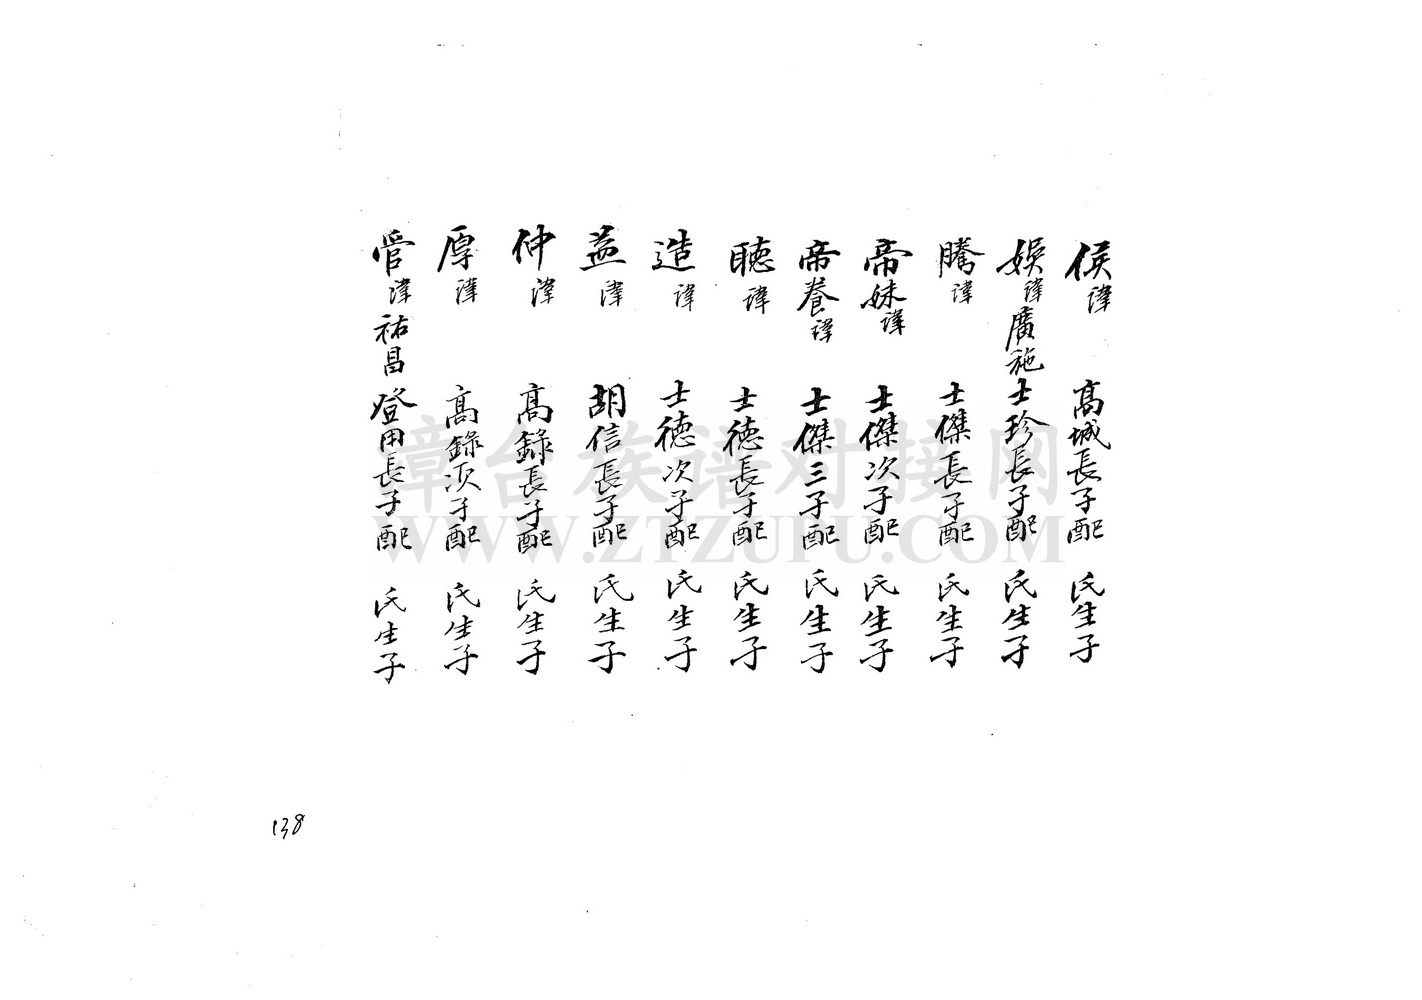 侯諱 高城長子配 氏生子
娛諱廣施 士珍長子配 氏生子
騰諱 士傑長子配 氏生子
帝妹諱 士傑次子配 氏生子
帝養諱 士傑三子配 氏生子
聽諱 士德長子配 氏生子
造諱 士德次子配 氏生子
益諱 胡信長子配 氏生子
仲諱 高錄長子配 氏生子
厚諱 高錄次子配 氏生子
管諱祐昌 登用長子配 氏生子
138
章台族谱对接网
WWW.ZTZUPU.COM